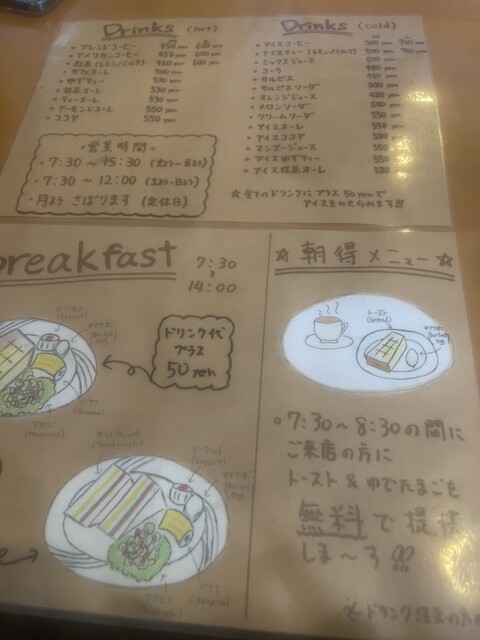 Drinks (HOT)
・ブレンドコーヒー 450 yen 600 yen
・アメリカンコーヒー 450 yen 600 yen
・紅茶 (レモン/ミルク) 450 yen 600 yen
・カフェオーレ 500 yen
・ゆずティー 530 yen
・抹茶オーレ 530 yen
・ティーオーレ 530 yen
・アーモンドオーレ 550 yen
・ココア 550 yen
・営業時間・
・7:30 ~ 15:30
・7:30 ~ 12:00 (土よう・日よう)
・月よう さぼります (定休日)
Drinks (cold)
・アイスコーヒー 500 yen 700 yen
・アイスティー (レモン/ミルク) 500 yen 700 yen
・ミックスジュース 500 yen
・コーラ 480 yen
・カルピス
・カルピスソーダ 500 yen
・オレンジジュース 480 yen
・メロンソーダ
・クリームソーダ
・アイスオーレ 550
・アイスココア 580
・マンゴージュース 550
・アイスゆずティー 550
・アイス抹茶オーレ 580
☆全てのドリンクにプラス50yenで
アイスをのせられます!!
breakfast
7:30
~
14:00
ドリンク代
プラス
50 yen
(Yogurt)
ゆでたまご
バナナ
(Banana)
サンドウィッチ
(Sandwich)
ヨーグルト
(Yogurt)
ゆでたまご
バナナ
(Banana)
☆ 朝得メニュー ☆
トースト
(bread)
ゆでたまご
・7:30~8:30の間に
ご来店の方に
トースト & ゆでたまごを
無料で提供
しま~す!!
※ドリンク注文の方